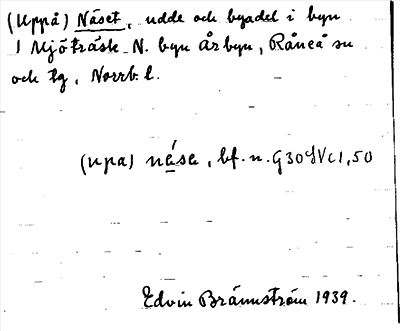 (Uppå) Näset, udde och byadel i byn
1 Mjöträsk N. byn Årbyn, Råneå sn
och tg, Norrb. l.
(upa) nása, bf. n. G30 Vc1,50
Edvin Brännström 1939.